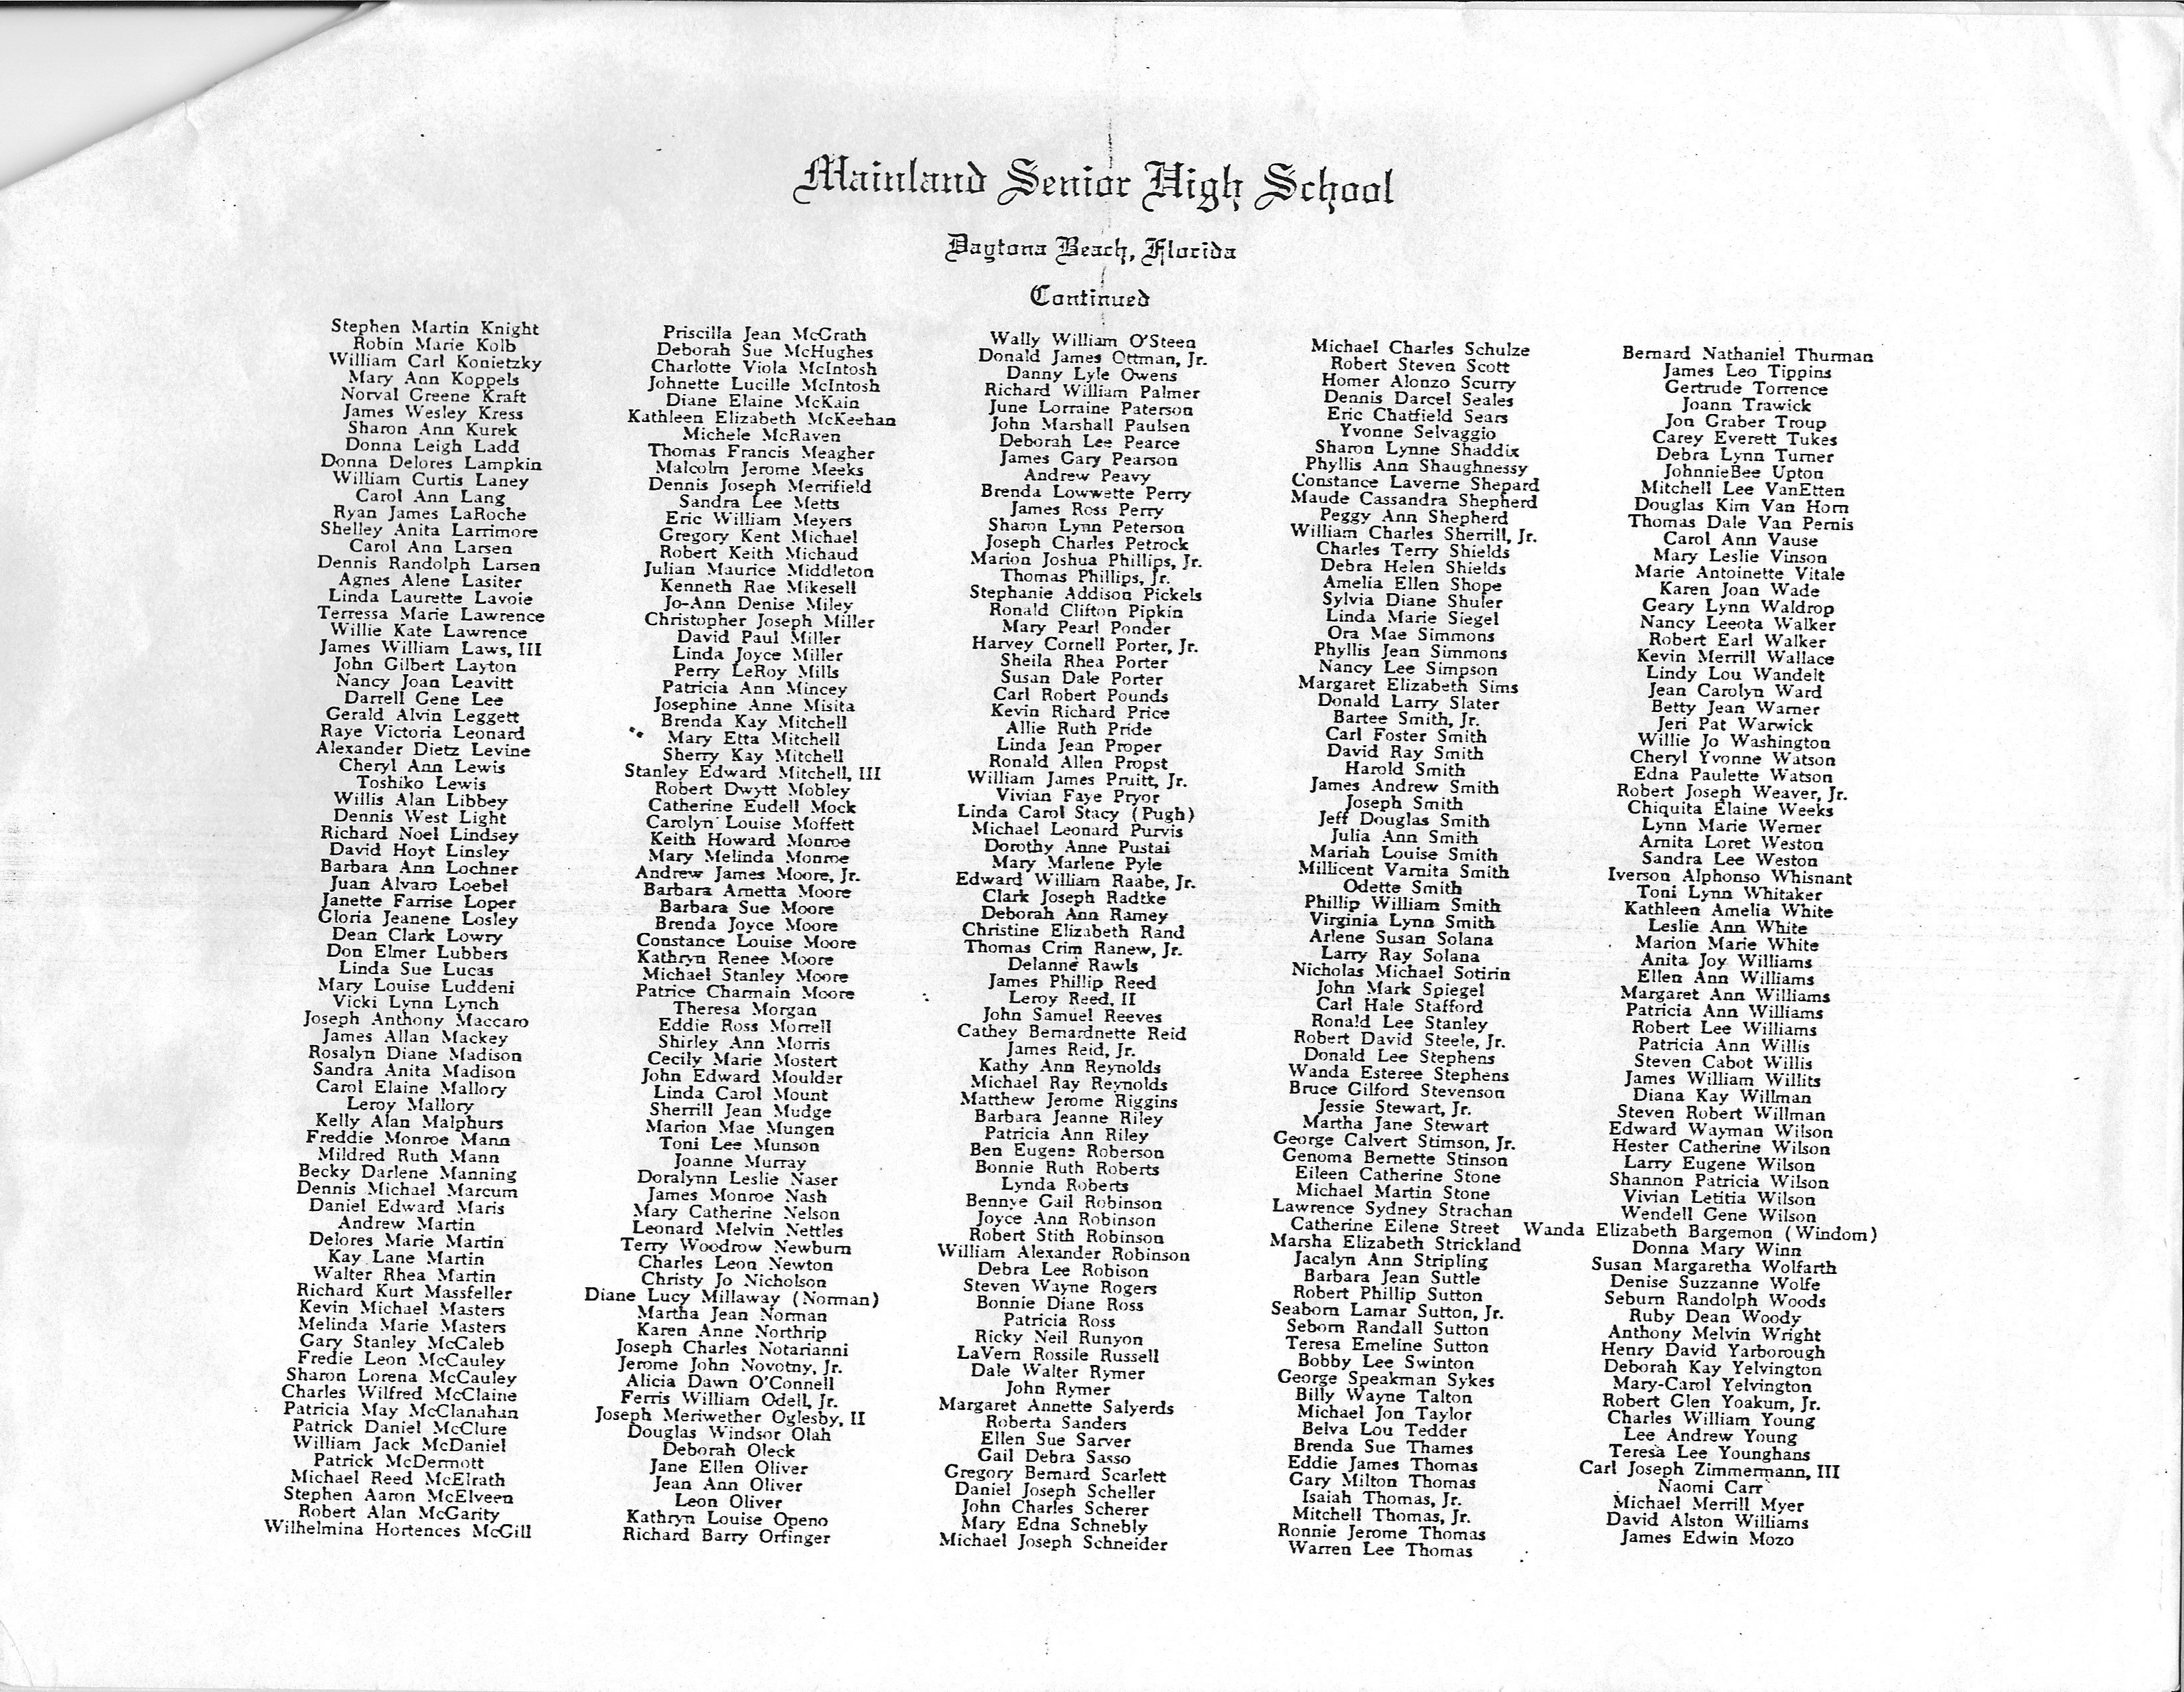 Mainland Senior High School
Daytona Beach, Florida
Continued
Stephen Martin Knight
Robin Marie Kolb
William Carl Konietzky
Mary Ann Koppels
Norval Greene Kraft
James Wesley Kress
Sharon Ann Kurek
Donna Leigh Ladd
Donna Delores Lampkin
William Curtis Laney
Carol Ann Lang
Ryan James LaRoche
Shelley Anita Larrimore
Carol Ann Larsen
Dennis Randolph Larsen
Agnes Alene Lasiter
Linda Laurette Lavoie
Terressa Marie Lawrence
Willie Kate Lawrence
James William Laws, III
John Gilbert Layton
Nancy Joan Leavitt
Darrell Gene Lee
Gerald Alvin Leggett
Raye Victoria Leonard
Alexander Dietz Levine
Cheryl Ann Lewis
Toshiko Lewis
Willis Alan Libbey
Dennis West Light
Richard Noel Lindsey
David Hoyt Linsley
Barbara Ann Lochner
Juan Alvaro Loebel
Janette Farrise Loper
Gloria Jeanene Losley
Dean Clark Lowry
Don Elmer Lubbers
Linda Sue Lucas
Mary Louise Luddeni
Vicki Lynn Lynch
Joseph Anthony Maccaro
James Allan Mackey
Rosalyn Diane Madison
Sandra Anita Madison
Carol Elaine Mallory
Leroy Mallory
Kelly Alan Malphurs
Freddie Monroe Mann
Mildred Ruth Mann
Becky Darlene Manning
Dennis Michael Marcum
Daniel Edward Maris
Andrew Martin
Delores Marie Martin
Kay Lane Martin
Walter Rhea Martin
Richard Kurt Massfeller
Kevin Michael Masters
Melinda Marie Masters
Gary Stanley McCaleb
Fredie Leon McCauley
Sharon Lorena McCauley
Charles Wilfred McClaine
Patricia May McClanahan
Patrick Daniel McClure
William Jack McDaniel
Patrick McDermott
Michael Reed McElrath
Stephen Aaron McElveen
Robert Alan McGarity
Wilhelmina Hortences McGill
Priscilla Jean McGrath
Deborah Sue McHughes
Charlotte Viola McIntosh
Johnette Lucille McIntosh
Diane Elaine McKain
Kathleen Elizabeth McKeehan
Michele McRaven
Thomas Francis Meagher
Malcolm Jerome Meeks
Dennis Joseph Merrifield
Sandra Lee Metts
Eric William Meyers
Gregory Kent Michael
Robert Keith Michaud
Julian Maurice Middleton
Kenneth Rae Mikesell
Jo-Ann Denise Miley
Christopher Joseph Miller
David Paul Miller
Linda Joyce Miller
Perry LeRoy Mills
Patricia Ann Mincey
Josephine Anne Misita
Brenda Kay Mitchell
Mary Etta Mitchell
Sherry Kay Mitchell
Stanley Edward Mitchell, III
Robert Dwytt Mobley
Catherine Eudell Mock
Carolyn Louise Moffett
Keith Howard Monroe
Mary Melinda Monroe
Andrew James Moore, Jr.
Barbara Arnetta Moore
Barbara Sue Moore
Brenda Joyce Moore
Constance Louise Moore
Kathryn Renee Moore
Michael Stanley Moore
Patrice Charmain Moore
Theresa Morgan
Eddie Ross Morrell
Shirley Ann Morris
Cecily Marie Mostert
John Edward Moulder
Linda Carol Mount
Sherrill Jean Mudge
Marion Mae Mungen
Toni Lee Munson
Joanne Murray
Doralynn Leslie Naser
James Monroe Nash
Mary Catherine Nelson
Leonard Melvin Nettles
Terry Woodrow Newburn
Charles Leon Newton
Christy Jo Nicholson
Diane Lucy Millaway (Norman)
Martha Jean Norman
Karen Anne Northrip
Joseph Charles Notarianni
Jerome John Novotny, Jr.
Alicia Dawn O'Connell
Ferris William Odell, Jr.
Joseph Meriwether Oglesby, II
Douglas Windsor Olah
Deborah Oleck
Jane Ellen Oliver
Jean Ann Oliver
Leon Oliver
Kathryn Louise Openo
Richard Barry Orfinger
Wally William O'Steen
Donald James Ottman, Jr.
Danny Lyle Owens
Richard William Palmer
June Lorraine Paterson
John Marshall Paulsen
Deborah Lee Pearce
James Gary Pearson
Andrew Peavy
Brenda Lowwette Perry
James Ross Perry
Sharon Lynn Peterson
Joseph Charles Petrock
Marion Joshua Phillips, Jr.
Thomas Phillips, Jr.
Stephanie Addison Pickels
Ronald Clifton Pipkin
Mary Pearl Ponder
Harvey Cornell Porter, Jr.
Sheila Rhea Porter
Susan Dale Porter
Carl Robert Pounds
Kevin Richard Price
Allie Ruth Pride
Linda Jean Proper
Ronald Allen Propst
William James Pruitt, Jr.
Vivian Faye Pryor
Linda Carol Stacy (Pugh)
Michael Leonard Purvis
Dorothy Anne Pustai
Mary Marlene Pyle
Edward William Raabe, Jr.
Clark Joseph Radtke
Deborah Ann Ramey
Christine Elizabeth Rand
Thomas Crim Ranew, Jr.
Delanné Rawls
James Phillip Reed
Leroy Reed, II
John Samuel Reeves
Cathey Bernardnette Reid
James Reid, Jr.
Kathy Ann Reynolds
Michael Ray Reynolds
Matthew Jerome Riggins
Barbara Jeanne Riley
Patricia Ann Riley
Ben Eugene Roberson
Bonnie Ruth Roberts
Lynda Roberts
Bennye Gail Robinson
Joyce Ann Robinson
Robert Stith Robinson
William Alexander Robinson
Debra Lee Robison
Steven Wayne Rogers
Bonnie Diane Ross
Patricia Ross
Ricky Neil Runyon
LaVern Rossile Russell
Dale Walter Rymer
John Rymer
Margaret Annette Salyerds
Roberta Sanders
Ellen Sue Sarver
Gail Debra Sasso
Gregory Bernard Scarlett
Daniel Joseph Scheller
John Charles Scherer
Mary Edna Schnebly
Michael Joseph Schneider
Michael Charles Schulze
Robert Steven Scott
Homer Alonzo Scurry
Dennis Darcel Seales
Eric Chatfield Sears
Yvonne Selvaggio
Sharon Lynne Shaddix
Phyllis Ann Shaughnessy
Constance Laverne Shepard
Maude Cassandra Shepherd
Peggy Ann Shepherd
William Charles Sherrill, Jr.
Charles Terry Shields
Debra Helen Shields
Amelia Ellen Shope
Sylvia Diane Shuler
Linda Marie Siegel
Ora Mae Simmons
Phyllis Jean Simmons
Nancy Lee Simpson
Margaret Elizabeth Sims
Donald Larry Slater
Bartee Smith, Jr.
Carl Foster Smith
David Ray Smith
Harold Smith
James Andrew Smith
Joseph Smith
Jeff Douglas Smith
Julia Ann Smith
Mariah Louise Smith
Millicent Varnita Smith
Odette Smith
Phillip William Smith
Virginia Lynn Smith
Arlene Susan Solana
Larry Ray Solana
Nicholas Michael Sotirin
John Mark Spiegel
Carl Hale Stafford
Ronald Lee Stanley
Robert David Steele, Jr.
Donald Lee Stephens
Wanda Esteree Stephens
Bruce Gilford Stevenson
Jessie Stewart, Jr.
Martha Jane Stewart
George Calvert Stimson, Jr.
Genoma Bernette Stinson
Eileen Catherine Stone
Michael Martin Stone
Lawrence Sydney Strachan
Catherine Eilene Street
Marsha Elizabeth Strickland
Jacalyn Ann Stripling
Barbara Jean Suttle
Robert Phillip Sutton
Seaborn Lamar Sutton, Jr.
Seborn Randall Sutton
Teresa Emeline Sutton
Bobby Lee Swinton
George Speakman Sykes
Billy Wayne Talton
Michael Jon Taylor
Belva Lou Tedder
Brenda Sue Thames
Eddie James Thomas
Gary Milton Thomas
Isaiah Thomas, Jr.
Mitchell Thomas, Jr.
Ronnie Jerome Thomas
Warren Lee Thomas
Bernard Nathaniel Thurman
James Leo Tippins
Gertrude Torrence
Joann Trawick
Jon Graber Troup
Carey Everett Tukes
Debra Lynn Turner
JohnnieBee Upton
Mitchell Lee VanEtten
Douglas Kim Van Horn
Thomas Dale Van Pernis
Carol Ann Vause
Mary Leslie Vinson
Marie Antoinette Vitale
Karen Joan Wade
Geary Lynn Waldrop
Nancy Leeota Walker
Robert Earl Walker
Kevin Merrill Wallace
Lindy Lou Wandelt
Jean Carolyn Ward
Betty Jean Warner
Jeri Pat Warwick
Willie Jo Washington
Cheryl Yvonne Watson
Edna Paulette Watson
Robert Joseph Weaver, Jr.
Chiquita Elaine Weeks
Lynn Marie Werner
Arnita Loret Weston
Sandra Lee Weston
Iverson Alphonso Whisnant
Toni Lynn Whitaker
Kathleen Amelia White
Leslie Ann White
Marion Marie White
Anita Joy Williams
Ellen Ann Williams
Margaret Ann Williams
Patricia Ann Williams
Robert Lee Williams
Patricia Ann Willis
Steven Cabot Willis
James William Willits
Diana Kay Willman
Steven Robert Willman
Edward Wayman Wilson
Hester Catherine Wilson
Larry Eugene Wilson
Shannon Patricia Wilson
Vivian Letitia Wilson
Wendell Gene Wilson
Wanda Elizabeth Bargemon (Windom)
Donna Mary Winn
Susan Margaretha Wolfarth
Denise Suzzanne Wolfe
Seburn Randolph Woods
Ruby Dean Woody
Anthony Melvin Wright
Henry David Yarborough
Deborah Kay Yelvington
Mary-Carol Yelvington
Robert Glen Yoakum, Jr.
Charles William Young
Lee Andrew Young
Teresa Lee Younghans
Carl Joseph Zimmermann, III
Naomi Carr
Michael Merrill Myer
David Alston Williams
James Edwin Mozo